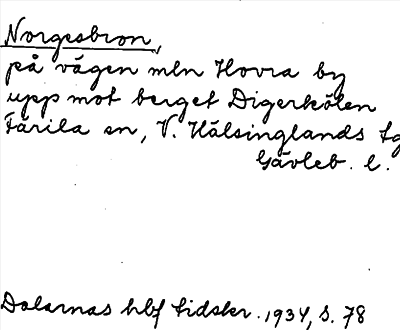 Norgesbron,
på vägen mln Hovra by
upp mot berget Digerkölen
Färila sn, V. Hälsinglands tg
Gävleb. l.
Dalarnas hbf tidskr. 1934, s. 78